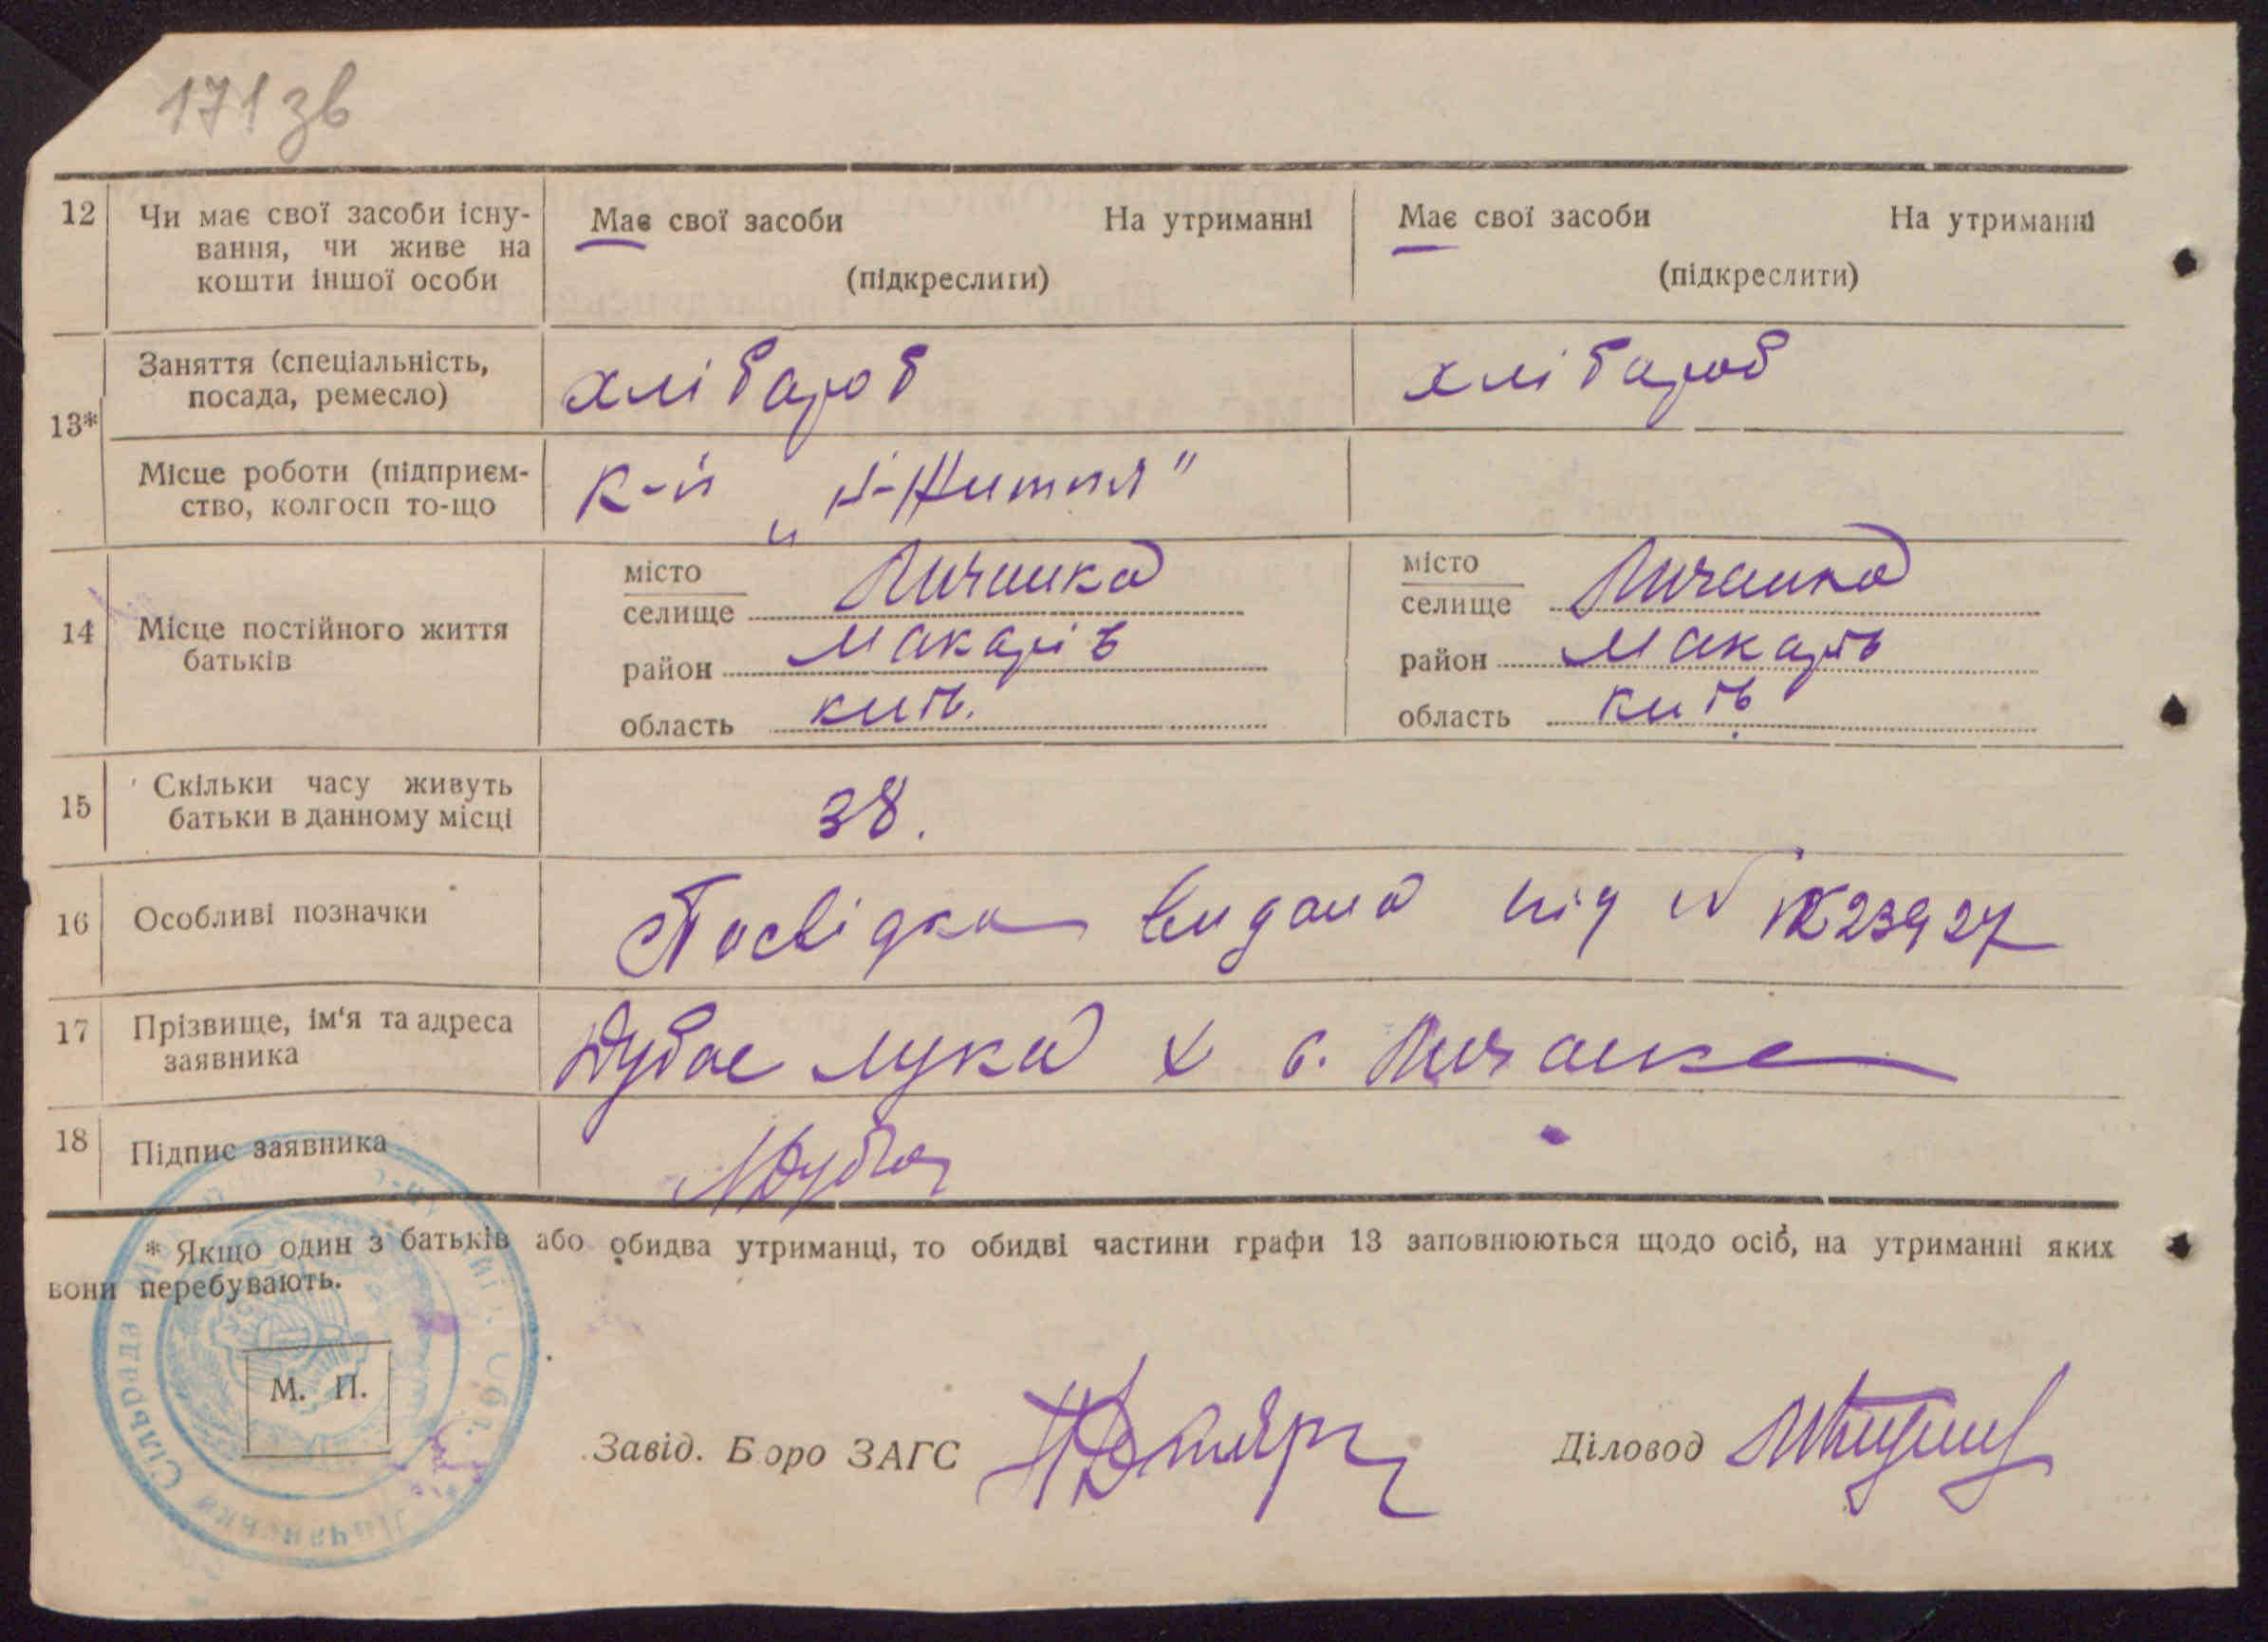 171 зв
12 Чи має свої засоби існу- Має свої засоби На утриманні Має свої засоби На утриманні
вання, чи живе на
кошти іншої особи (підкреслити) (підкреслити)
13* Заняття (спеціальність, хлібароб хлібароб
посада, ремесло)
Місце роботи (підприєм- к-п „Н-Життя"
ство, колгосп то-що
14 Місце постійного життя батьків
місто Личанка місто Личанка
селище селище
район Макарів район Макарів
область київ. область київ
15 Скільки часу живуть 38.
батьки в данному місці
16 Особливі позначки Посвідка видана під N 1К23927
17 Прізвище, ім'я та адреса Дубас Лука Х с. Личанка
заявника
18 Підпис заявника
* Якщо один з батьків або обидва утриманці, то обидві частини графи 13 заповнюються щодо осіб, на утриманні яких
вони перебувають.
М. П.
Завід. Бюро ЗАГС Діловод
Личанська Сільрада